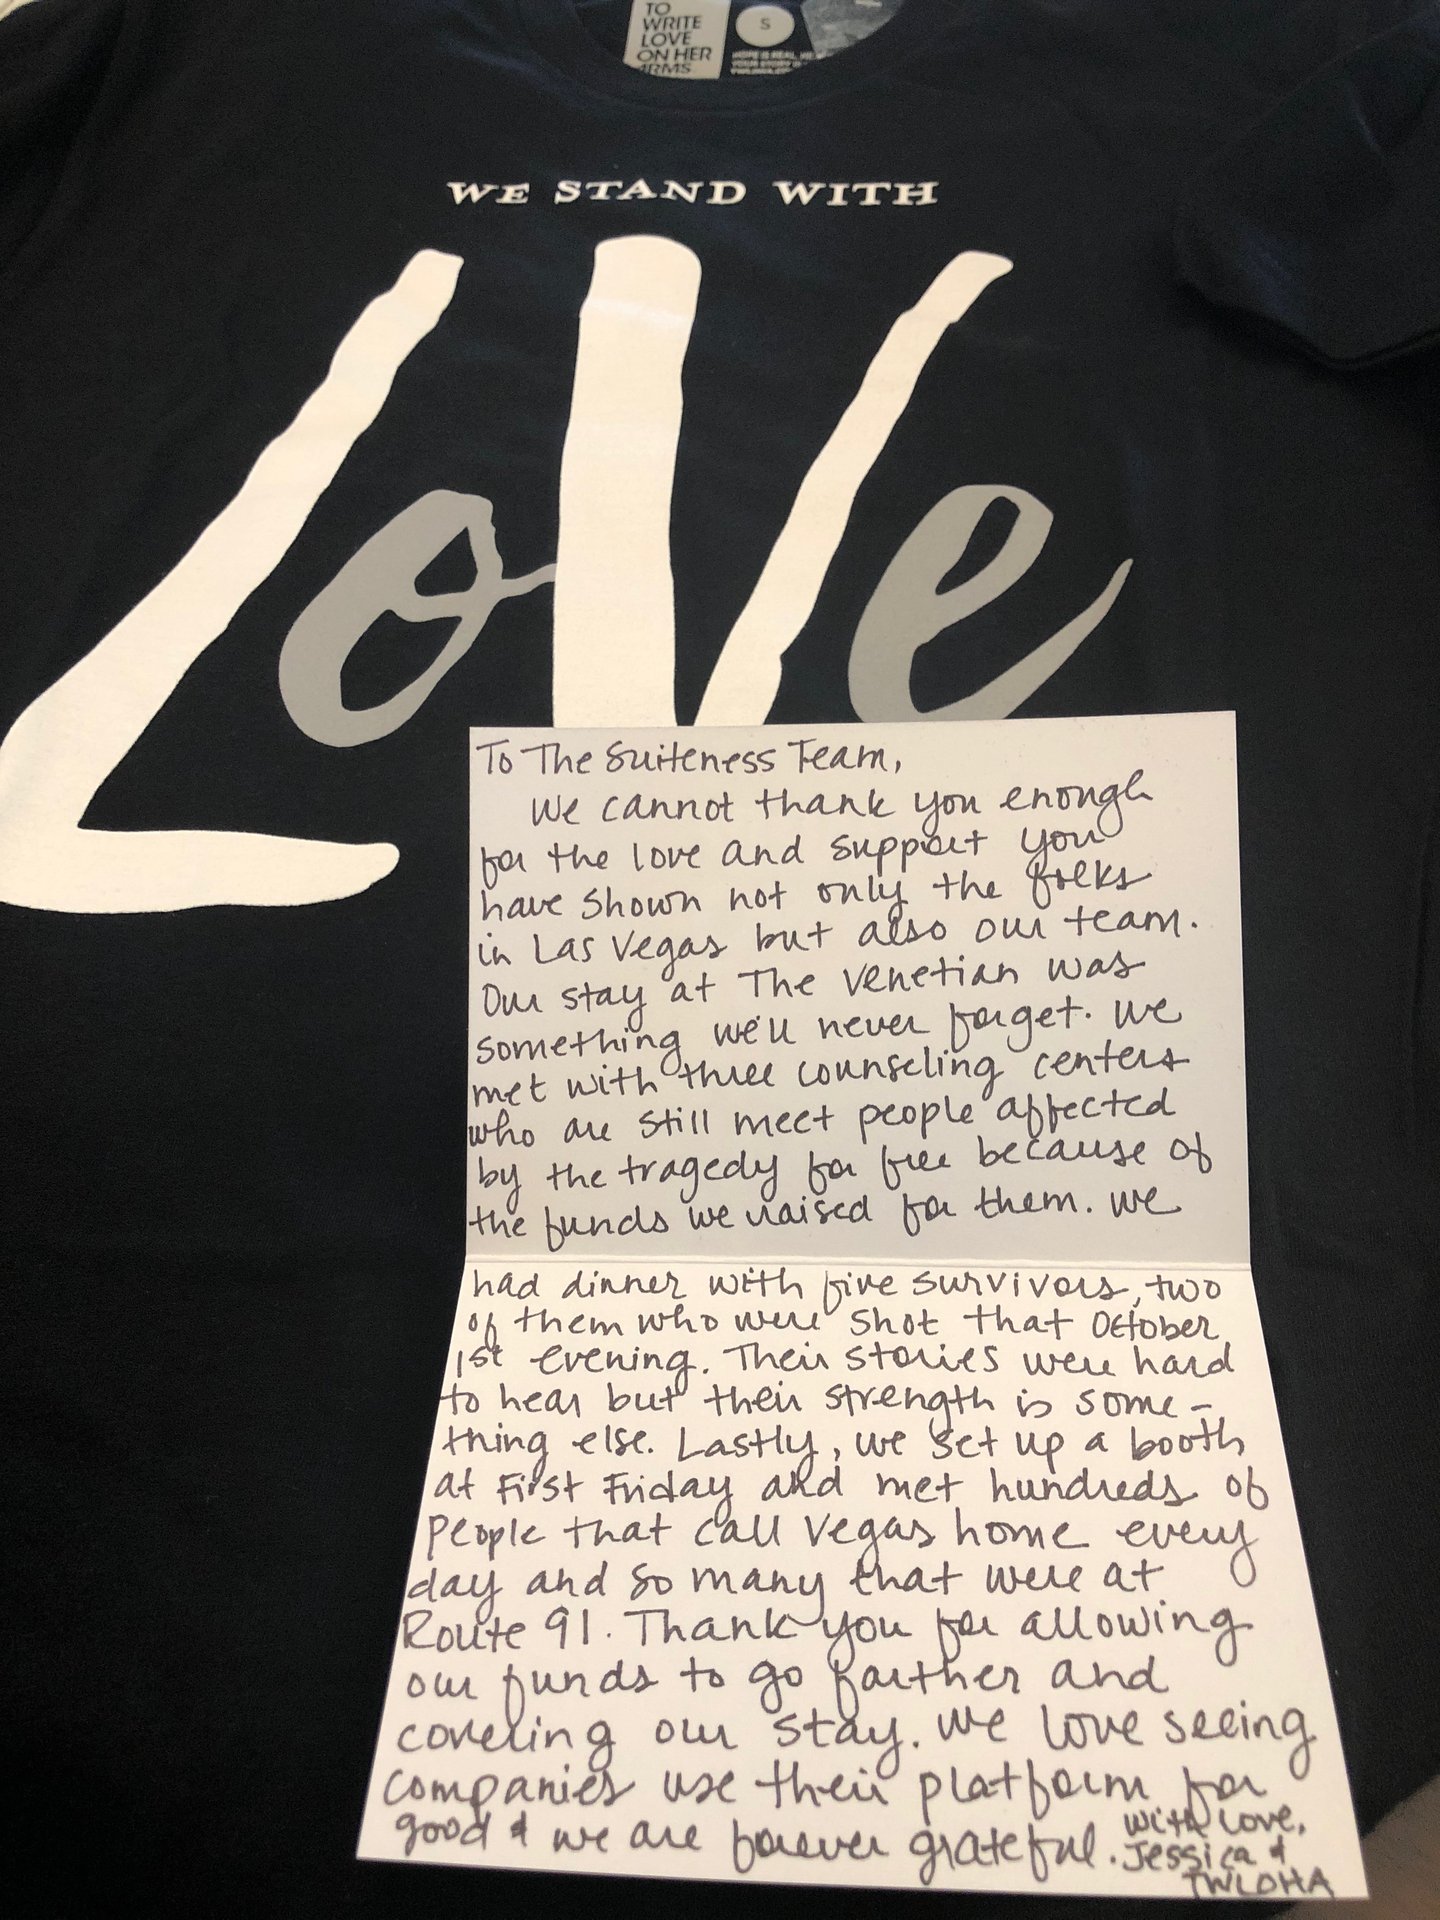 TO
WRITE
LOVE
ON HER
ARMS
S
WE STAND WITH
LoVe
To The Suiteness Team,
We cannot thank you enough
for the love and support you
have shown not only the folks
in Las Vegas but also our team.
Our stay at The Venetian was
something we'll never forget. We
met with three counseling centers
who are still meet people affected
by the tragedy for free because of
the funds we raised for them. We
had dinner with five survivors, two
of them who were shot that October
1st evening. Their stories were hard
to hear but their strength is some-
thing else. Lastly, we set up a booth
at First Friday and met hundreds of
people that call Vegas home every
day and so many that were at
Route 91. Thank you for allowing
our funds to go farther and
covering our stay. We love seeing
companies use their platform for
good & we are forever grateful.
With love,
Jessica &
TWLOHA